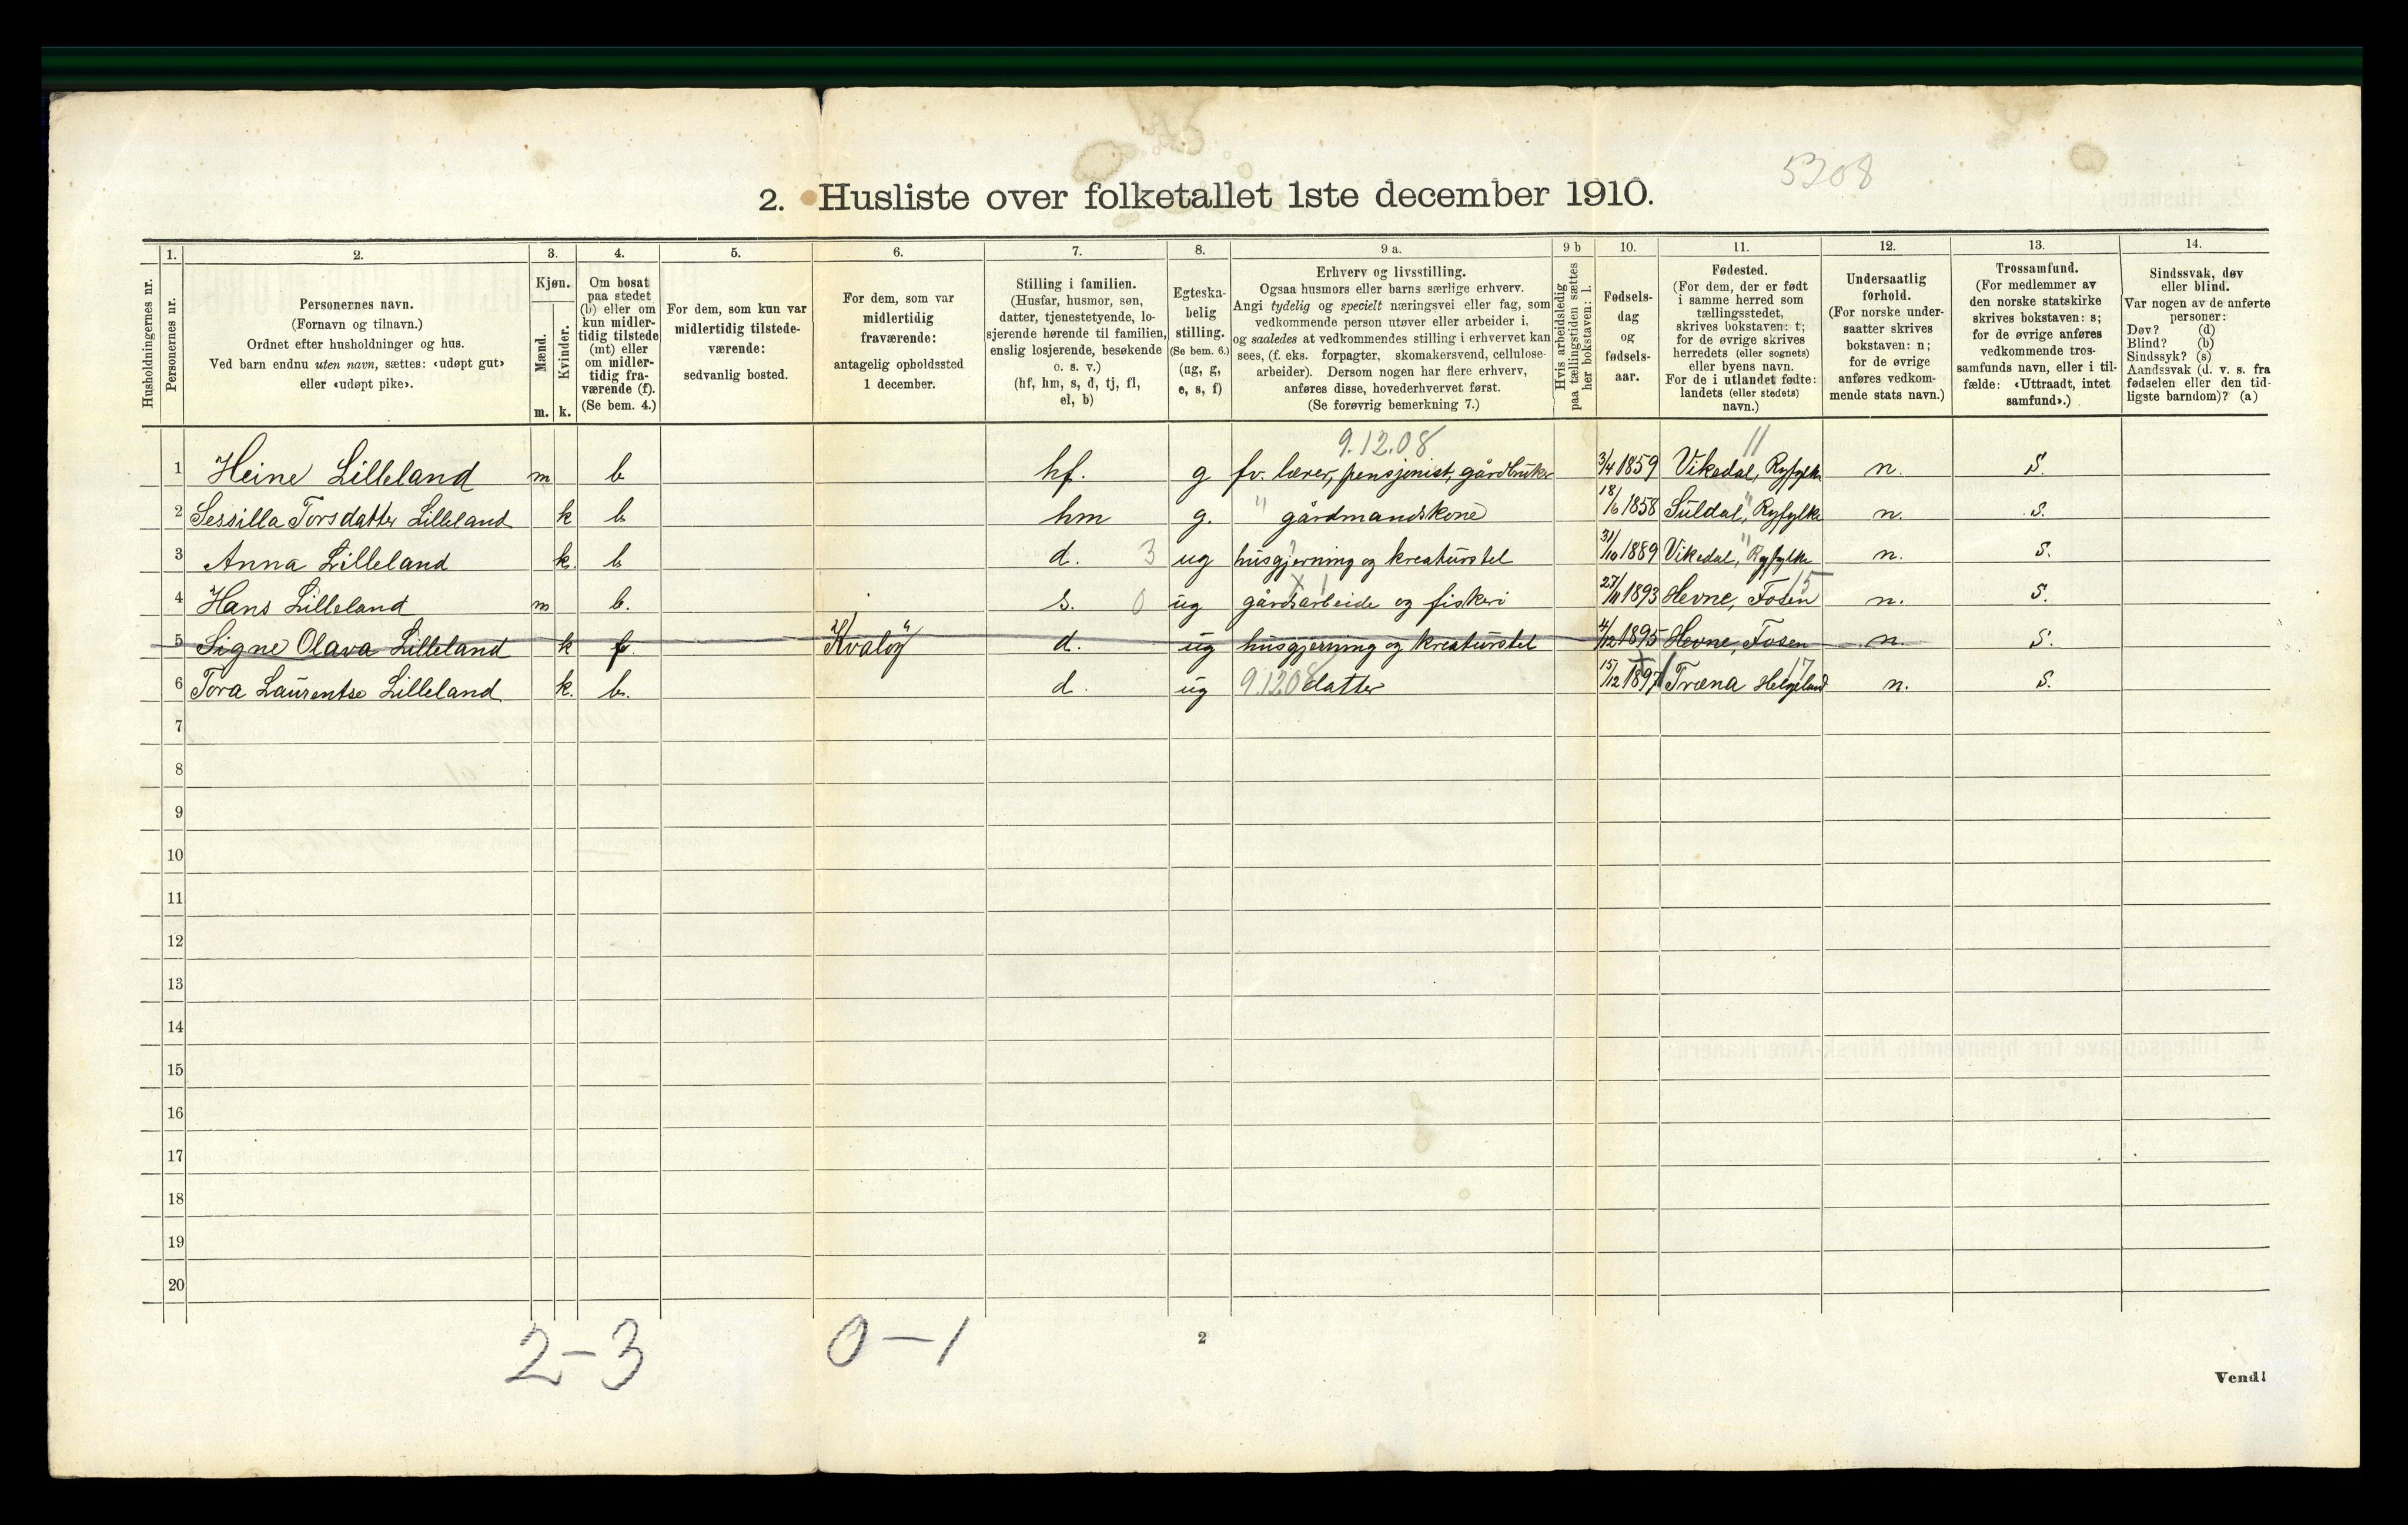 5308
2. Husliste over folketallet 1ste december 1910.
Husholdningernes nr.
1.
Personernes nr.
2.
Personernes navn.
(Fornavn og tilnavn.)
Ordnet efter husholdninger og hus.
Ved barn endnu uten navn, sættes: «udøpt gut»
eller «udøpt pike».
3.
Kjøn.
Mænd.
Kvinder.
m. k.
4.
Om bosat
paa stedet
(b) eller om
kun midler-
tidig tilstede
(mt) eller
om midler-
tidig fra-
værende (f).
(Se bem. 4.)
5.
For dem, som kun var
midlertidig tilstede-
værende:
sedvanlig bosted.
6.
For dem, som var
midlertidig
fraværende:
antagelig opholdssted
1 december.
7.
Stilling i familien.
(Husfar, husmor, søn,
datter, tjenestetyende, lo-
sjerende hørende til familien,
enslig losjerende, besøkende
o. s. v.)
(hf, hm, s, d, tj, fl,
el, b)
8.
Egteska-
belig
stilling.
(Se bem. 6.)
(ug, g,
e, s, f)
9 a.
Erhverv og livsstilling.
Ogsaa husmors eller barns særlige erhverv.
Angi tydelig og specielt næringsvei eller fag, som
vedkommende person utøver eller arbeider i,
og saaledes at vedkommendes stilling i erhvervet kan
sees, (f. eks. forpagter, skomakersvend, cellulose-
arbeider). Dersom nogen har flere erhverv,
anføres disse, hovederhvervet først.
(Se forøvrig bemerkning 7.)
9 b
Hvis arbeidsledig
paa tællingstiden sættes
her bokstaven: l.
10.
Fødsels-
dag
og
fødsels-
aar.
11.
Fødested.
(For dem, der er født
i samme herred som
tællingsstedet,
skrives bokstaven: t;
for de øvrige skrives
herredets (eller sognets)
eller byens navn.
For de i utlandet fødte:
landets (eller stedets)
navn.)
12.
Undersaatlig
forhold.
(For norske under-
saatter skrives
bokstaven: n;
for de øvrige
anføres vedkom-
mende stats navn.)
13.
Trossamfund.
(For medlemmer av
den norske statskirke
skrives bokstaven: s;
for de øvrige anføres
vedkommende tros-
samfunds navn, eller i til-
fælde: «Uttraadt, intet
samfund».)
14.
Sindssvak, døv
eller blind.
Var nogen av de anførte
personer:
Døv? (d)
Blind? (b)
Sindssyk? (s)
Aandssvak (d. v. s. fra
fødselen eller den tid-
ligste barndom)? (a)
9.12.08 11
1 Heine Lilleland m b hf. g fv. lærer, pensjonist, gårdbruker 3/4 1859 Vikedal, Ryfylke n. S.
2 Sessilla Torsdatter Lilleland k b hm g. " gårdmandskone 18/6 1858 Suldal, " Ryfylke n. S.
3 Anna Lilleland k. b d. 3 ug husgjerning og kreaturstel 31/10 1889 Vikedal, " Ryfylke n. S.
4 Hans Lilleland m b. s. 0 ug gårdsarbeide og fiskeri 27/11 1893 Hevne, Fosen 15 n. S.
5 Signe Olava Lilleland k f Kvaløy d. ug husgjerning og kreaturstel 4/12 1895 Hevne, Fosen n S.
6 Tora Laurentse Lilleland k. b. d. ug 9.12.08 datter 15/12 1897 Træna Helgeland 17 n. S.
7
8
9
10
11
12
13
14
15
16
17
18
19
20
2-3 0-1
2
Vend!